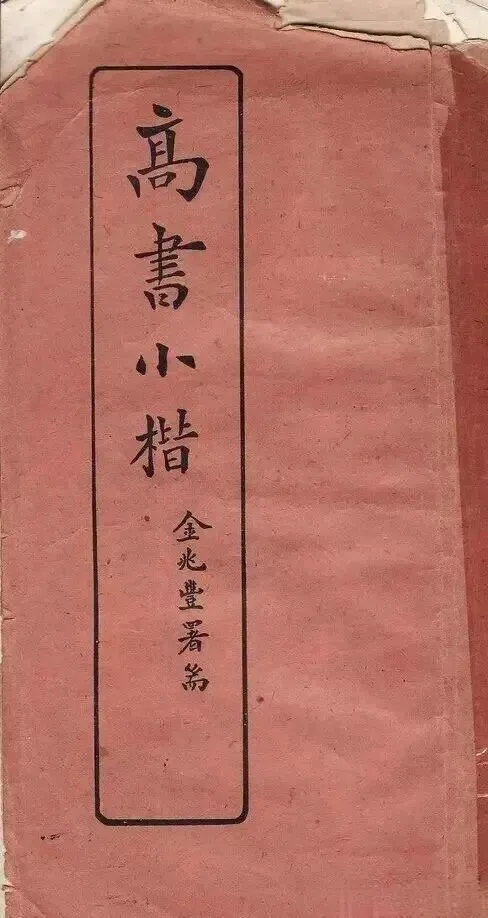 髙書小楷
金兆豐署耑